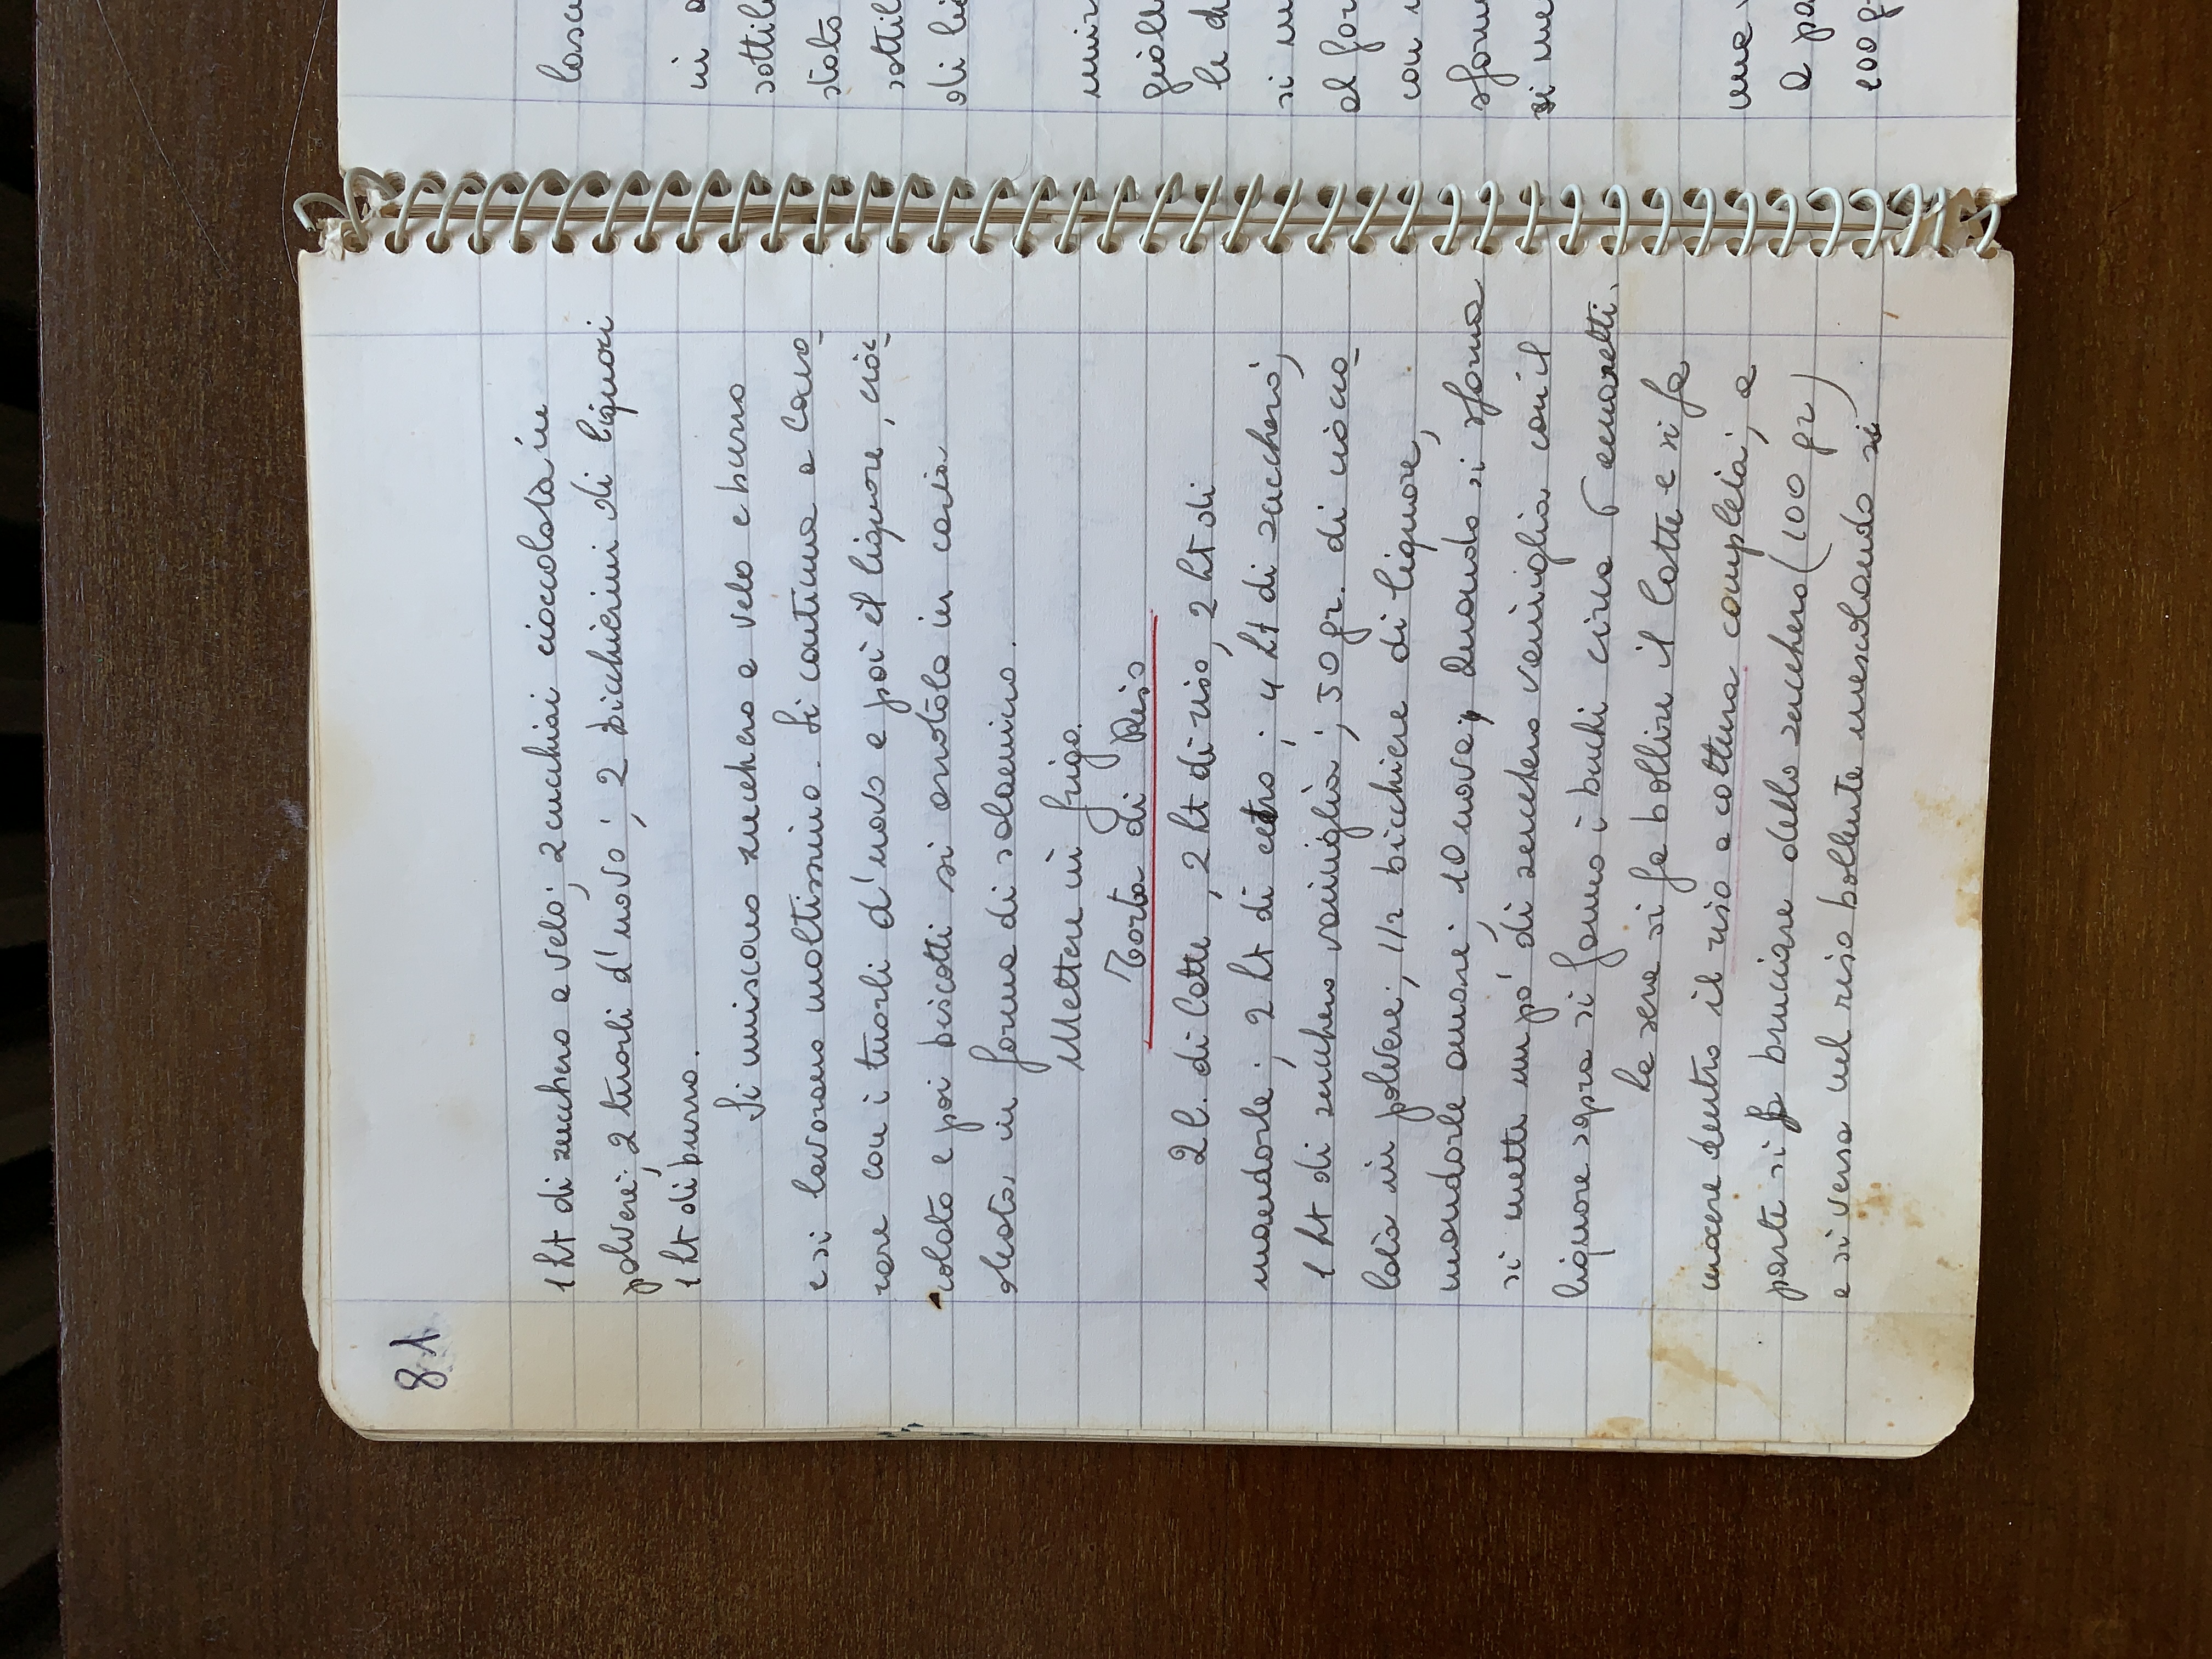 81
1 ht di zucchero a velo; 2 cucchiai cioccolata in
polvere; 2 tuorli d'uovo; 2 bicchierini di liquori
1 ht di burro.
Si uniscono zucchero a velo e burro
e si lavorano moltissimo. Si continua a lavo_
rare con i tuorli d'uovo e poi il liquore, cioc_
colato e poi biscotti si arrotola in carta
oleata in forma di salamino.
Mettere in frigo.
Torta di Riso
2 l. di latte, 2 ht di riso, 2 ht di
mandorle; 2 ht di cedro; 4 ht di zucchero;
1 ht di zucchero vaniglia; 50 gr. di ciocco_
lata in polvere; 1/2 bicchiere di liquore,
mandorle amare; 10 uova; Quando si sforna
si mette un po' di zucchero vaniglia con il
liquore sopra si fanno i buchi circa 6 amaretti.
La sera si fa bollire il latte e si fa
cuocere dentro il riso a cottura completa; a
parte si fa bruciare dello zucchero (100 gr)
e si versa nel riso bollente mescolando si
in
sottil
stato
sottil
di
le
si
al for
con
sforn
si me
a pa
100 g